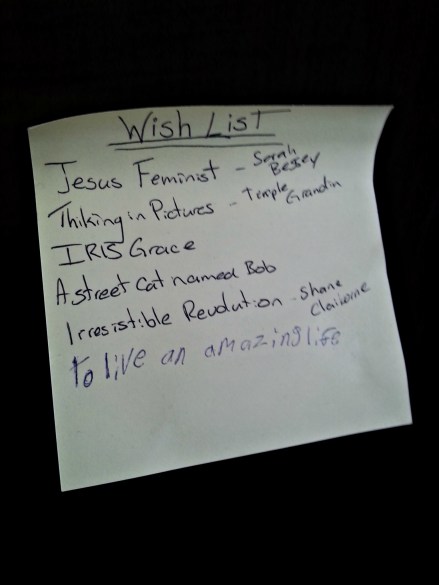 Wish List
Jesus Feminist - Sarah Bessey
Thiking in Pictures - Temple Grandin
IRIS Grace
A street Cat named Bob
Irresistible Revolution - Shane Claiborne
to live an amazing life